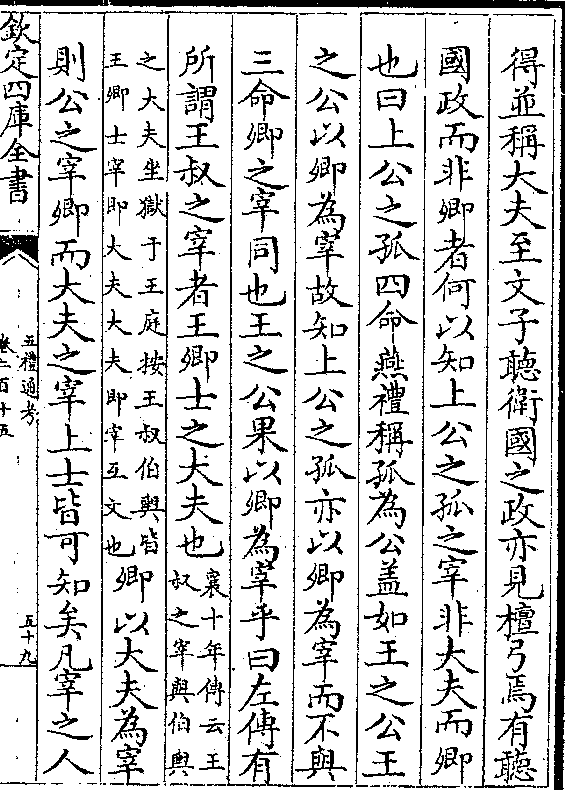 得並稱大夫至文子聽衛國之政亦見檀弓焉有聽
國政而非卿者何以知上公之孤之宰非大夫而卿
也曰上公之孤四命燕禮稱孤為公盖如王之公王
之公以卿為宰故知上公之孤亦以卿為宰而不與
三命卿之宰同也王之公果以卿為宰乎曰左傳有
所謂王叔之宰者王卿士之大夫也襄十年傳云王
叔之宰與伯輿
之大夫坐獄于王庭按王叔伯輿皆
王卿士宰即大夫大夫即宰互文也卿以大夫為宰
則公之宰卿而大夫之宰上士皆可知矣凡宰之人
欽定四庫全書
五禮通考
卷二百十五
五十九